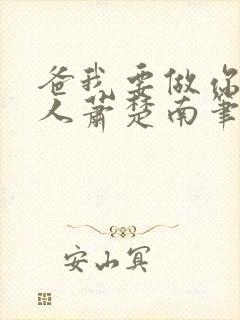 爸我要做你
人萧楚南笔
安山冥